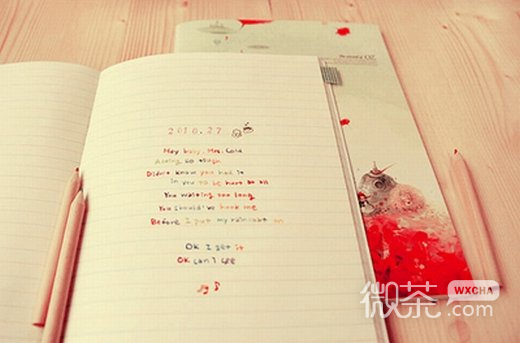 2010.27
Hey baby, Mrs. Cold
Acting so tough
Didn't know you had it
in you to be hurt at all
You walking too long
You should've hook me
Before I put my raincoat on
OK I get it
OK can't see
微茶 WXCHA